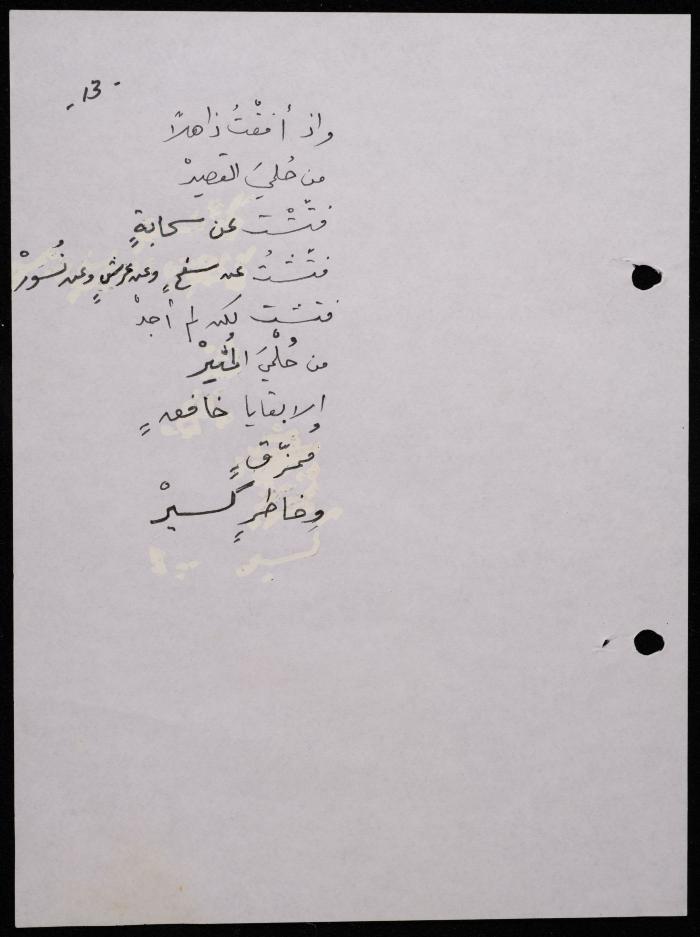 - 13 -
واذ أفقْتُ ذاهلاً
من حُلميَ القصيرْ
فتّشْت عن سحابةٍ
فتّشتُ عن سفحٍ وعن عرشٍ وعن نُسُورْ
فتشت لكن لم أجدْ
من حُلْميَ المُثيرْ
الا بقايا خافقٍ
مُمزّقٍ
وخاطرٍ كسيرْ